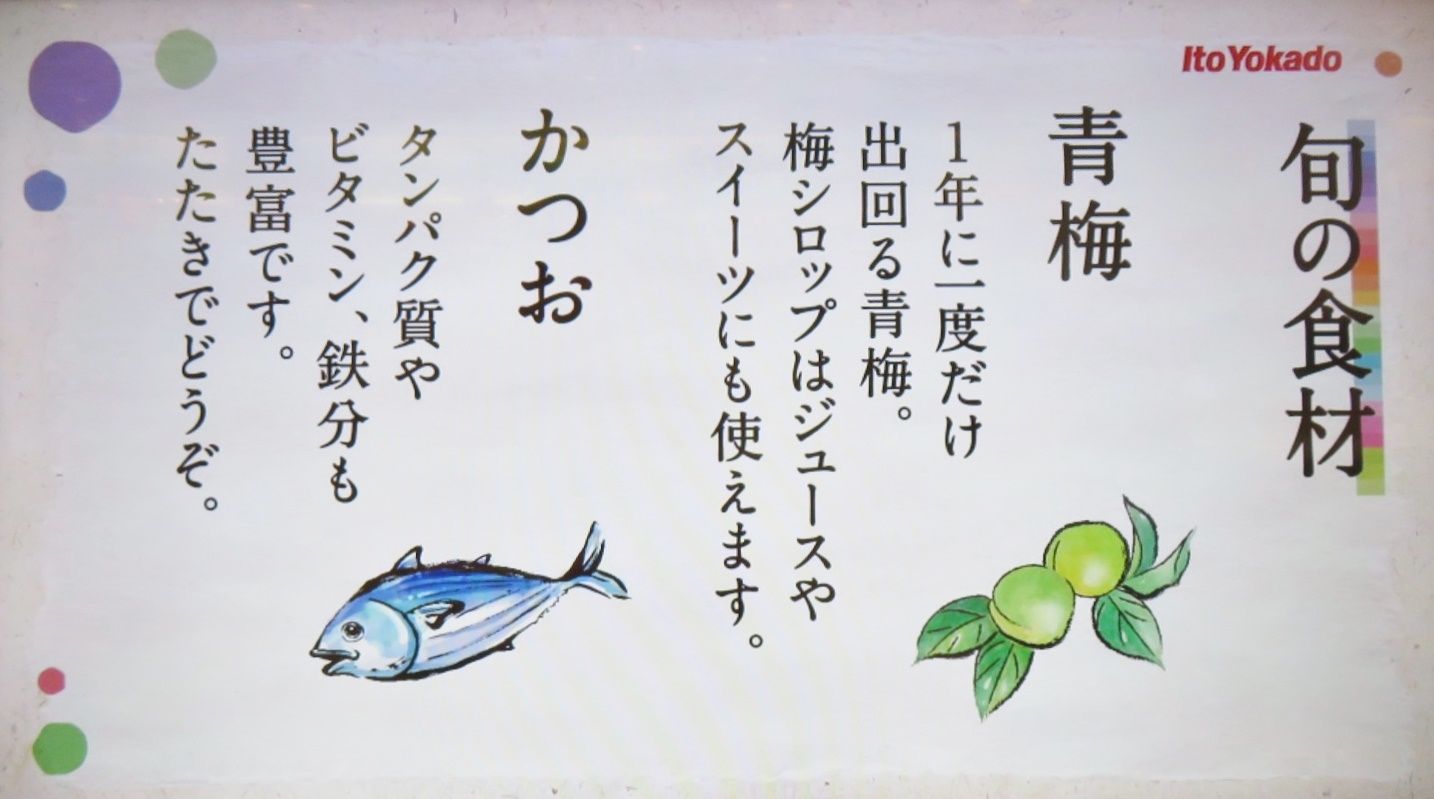 Ito Yokado
旬の食材
青梅
1年に一度だけ
出回る青梅。
梅シロップはジュースや
スイーツにも使えます。
かつお
タンパク質や
ビタミン、鉄分も
豊富です。
たたきでどうぞ。